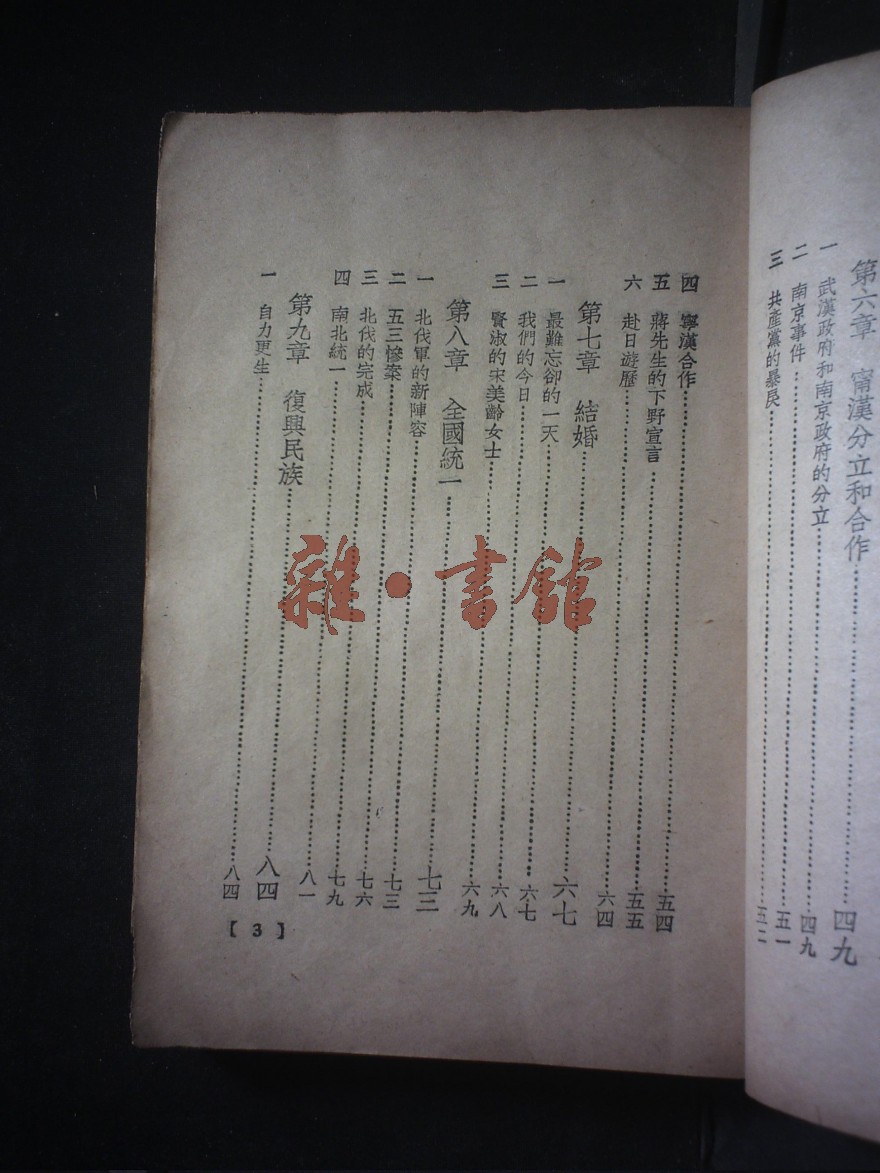 第六章　甯漢分立和合作…………四九
一　武漢政府和南京政府的分立…………四九
二　南京事件…………五一
三　共產黨的暴戾…………五二
四　寧漢合作…………五四
五　蔣先生的下野宣言…………五五
六　赴日遊歷…………六四
第七章　結婚…………六七
一　最難忘卻的一天…………六七
二　我們的今日…………六八
三　賢淑的宋美齡女士…………六九
第八章　全國統一…………七三
一　北伐軍的新陣容…………七三
二　五三慘案…………七六
三　北伐的完成…………七九
四　南北統一…………八一
第九章　復興民族…………八四
一　自力更生…………八四
【3】
雜·書館